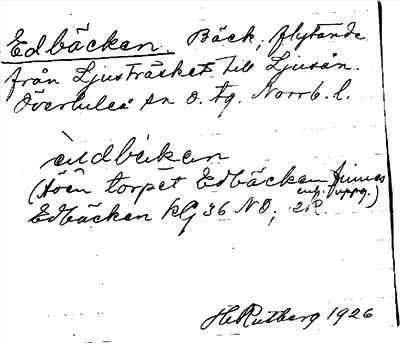 Edbäcken. Bäck, flytande
från Ljusträsket till Ljusån.
Överluleå sn o. tg. Norrb. l.
(Även torpet Edbäcken finnes
enl. uppg.)
Edbäcken kbl 36 NO, 2R.
H. Rutberg 1926